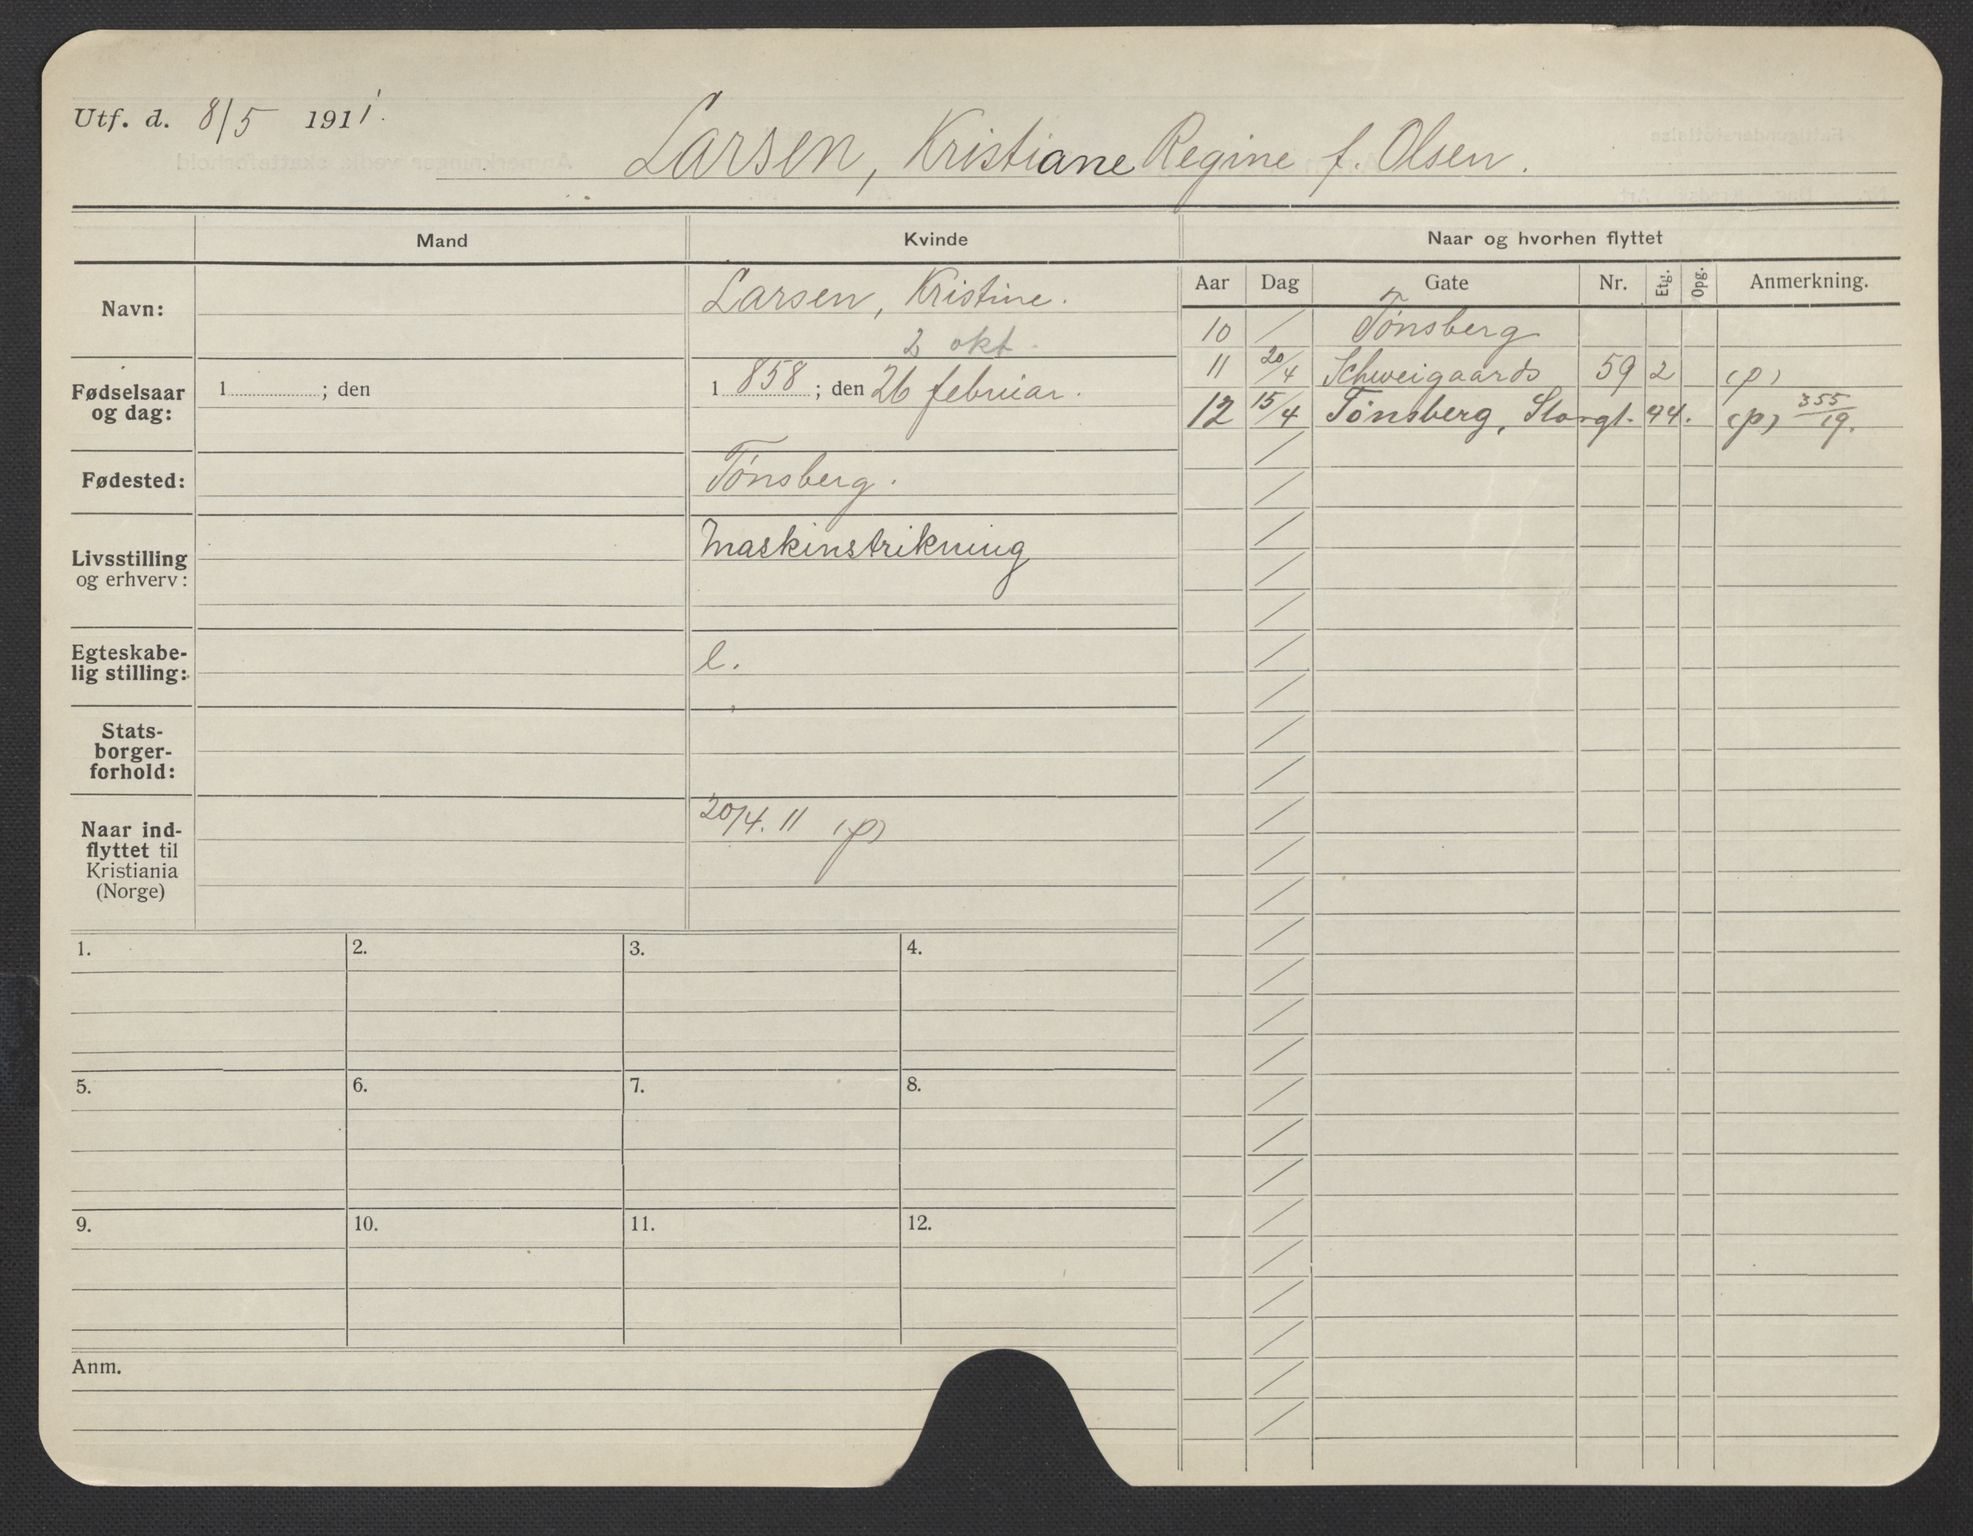 Utf. d. 8/5 1911.
Larsen, Kristiane Regine f. Olsen.
Mand Kvinde Naar og hvorhen flyttet
Aar Dag Gate Nr. Etg. Opg. Anmerkning.
Navn: Larsen, Kristine.
2 okt.
Fødselsaar og dag: 1 ; den 1 858 ; den 26 februar.
Fødested: Tønsberg.
Livsstilling og erhverv: Maskinstrikning
Egteskabe-
lig stilling: e.
Stats-
borger-
forhold:
Naar ind-
flyttet til
Kristiania
(Norge) 20/4. 11 (p)
10 / Tønsberg
11 20/4 Schweigaards 59 2 (p)
12 15/4 Tønsberg, Storgt. 44. (p) 355/19.
1. 2. 3. 4.
5. 6. 7. 8.
9. 10. 11. 12.
Anm.